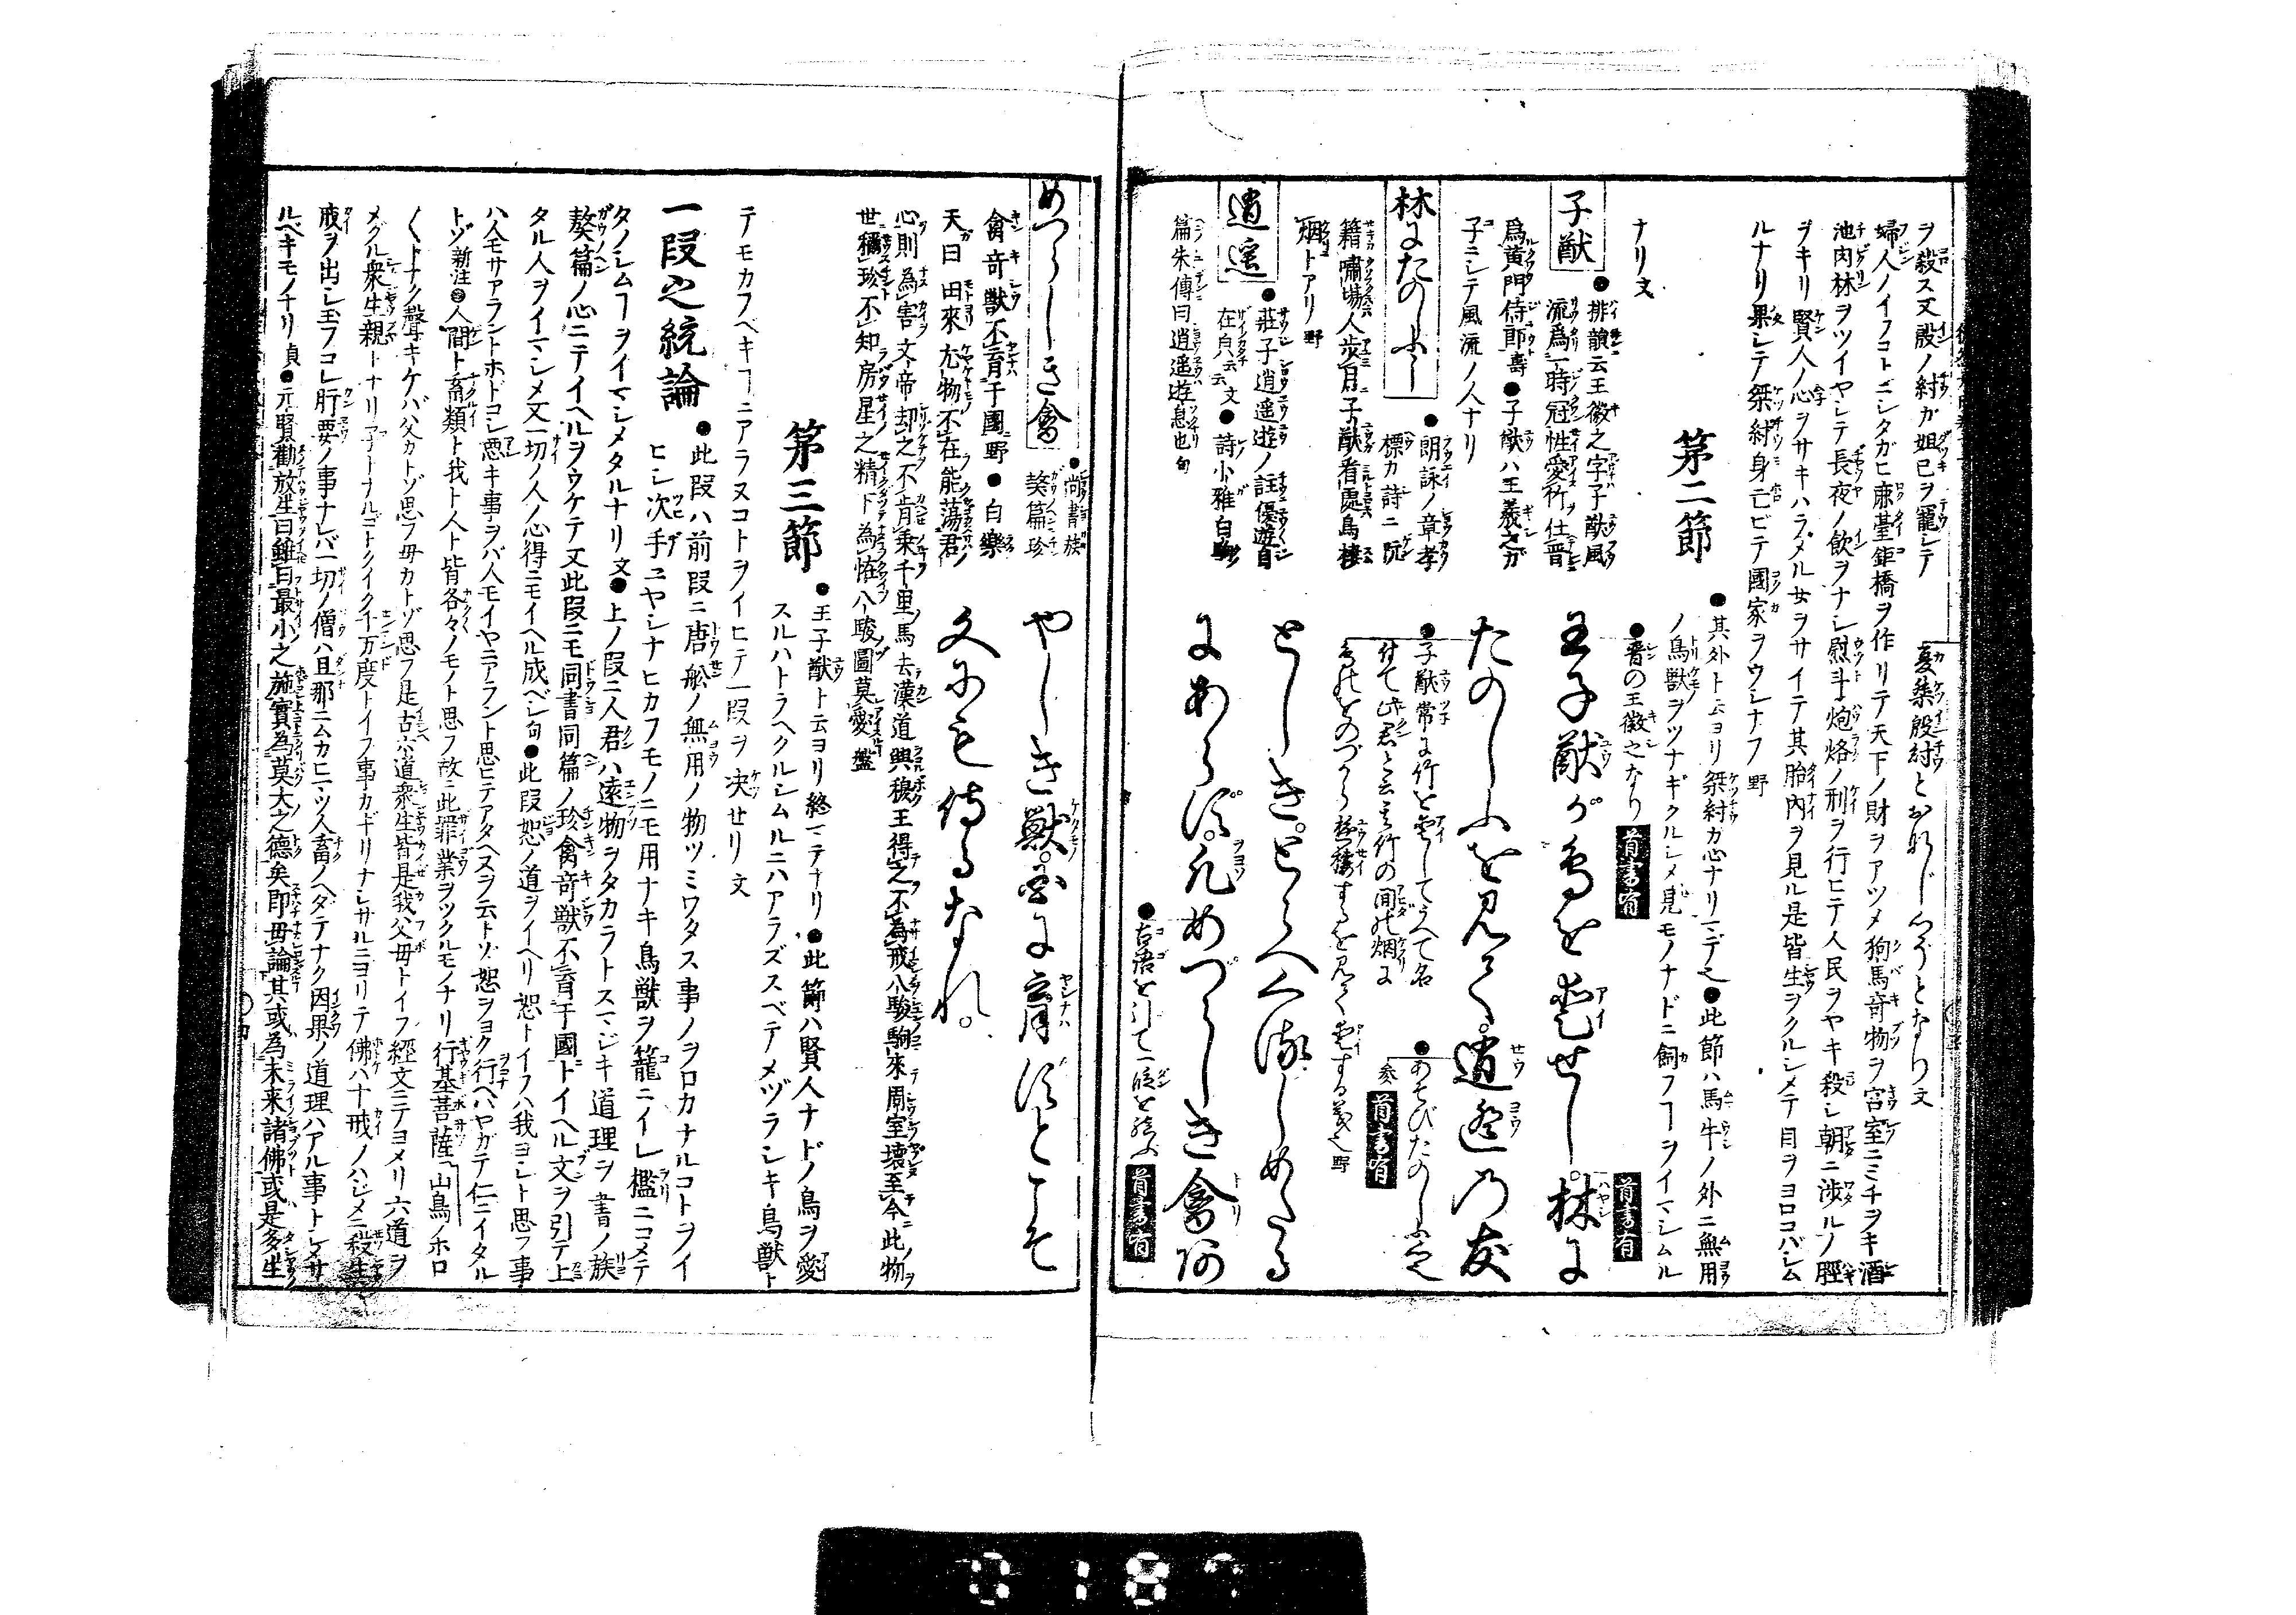 ヲ殺ス又殷ノ紂ガ妲己ヲ寵シテ
夏桀殷紂とおなじ心うとなり文
婦人ノイフコトニシタガヒ鹿臺鉅橋ヲ作リテ天下ノ財ヲアツメ狗馬奇物ヲ宮室ニミチヲキ酒
池肉林ヲツイヤシテ長夜ノ飲ヲナシ慰斗炮烙ノ刑ヲ行ヒテ人民ヲヤキ殺シ朝ニ渉ルノ脛
ヲキリ賢人ノ心ヲサキハラメル女ヲサイテ其胎内ヲ見ル是皆生ヲクルシメテ目ヲヨロコバシム
ルナリ果シテ桀紂身亡ビテ國家ヲウシナフ 野
第二節
●其外ト云ヨリ桀紂カ心ナリマデ也●此節ハ馬牛ノ外ニ無用
ノ鳥獣ヲツナギクルシメ見モノナドニ飼フヿヲイマシムル
ナリ文
子猷
●排韻云王徽之字子猷風
流爲一時冠性愛竹仕晋
爲黄門侍郎壽●子猷ハ王羲之カ
子ニシテ風流ノ人ナリ
●晋の王徽之なり 首書有
首書有
王子猷が鳥を愛せし。林に
たのしふを見て。逍遥の友
林にたのしふ
●朗詠ノ章孝
標カ詩ニ阮
籍嘯場人歩月子猷看處鳥棲
烟トアリ 野
●子猷常に竹を愛してうへて名
付て此君と云
●あそびたのしふ心也
参 首書有
逍遥
●莊子逍遥遊ノ註優遊自
在㒵云云文●詩小雅白駒
篇朱傳曰逍遥遊息也句
としき。とらへくるしめたる
にあらず。凡めづらしき禽あ
●古語を引て一段を結ふ 首書有
めつらしき禽
●尚書旅
獒篇珍
禽奇獣不育于國野●白樂
天曰由來尤物不在能蕩君
心則為害文帝却之不肯乗千里馬去漢道興穆王得之不為戒八駿駒來周室壊至今此物
世稱珍不知房星之精下為怪八駿圖莫愛 盤
やしき獣。國に育ずとこそ
文にも侍るなれ。
第三節
●王子猷ト云ヨリ終マテナリ●此節ハ賢人ナドノ鳥ヲ愛
スルハトラヘクルシムルニハアラズスベテメヅラシキ鳥獣ト
テモカフベキヿニアラヌコトヲイヒテ一段ヲ决セリ 文
一段之統論
●此段ハ前段ニ唐舩ノ無用ノ物ツミワタス事ノヲロカナルコトヲイ
ヒシ次手ニヤシナヒカフモノニモ用ナキ鳥獣ヲ籠ニイレ檻ニコメテ
タノシムヿヲイマシメタルナリ文●上ノ段ニ人君ハ遠物ヲタカラトスマジキ道理ヲ書ノ旅
獒篇ノ心ニテイヘルヲウケテ又此段ニモ同書同篇ノ珍禽奇獣不育于國トイヘル文ヲ引テ上
タル人ヲイマシメ又一切ノ人ノ心得ニモイヘル成ベシ句●此段恕ノ道ヲイヘリ恕トイフハ我ヨシト思フ事
ハ人モサアラントホドコシ悪キ事ヲバ人モイヤニアラント思ヒテアタヘヌヲ云トソ恕ヲヨク行ヘバヤガテ仁ニイタル
トゾ新注●人間ト畜類ト我ト人ト皆各々ノモノト思フ故ニ此罪業ヲツクルモノナリ行基菩薩山鳥ノホロ
〱トナク聲キケバ父カトゾ思フ母カトゾ思フ是古ハ六道衆生皆是我父母トイフ經文ニテヨメリ六道ヲ
メグル衆生親トナリ子トナルゴトクイク千万度トイフ事カギリナシサルニヨリテ佛ハ十戒ノハジメニ殺生
戒ヲ出シ玉フコレ肝要ノ事ナレバ一切ノ僧ハ且那ニムカヒマツ人畜ノヘダテナク因果ノ道理ハアル事トシメサ
ルベキモノナリ貞●元賢勸放生曰雖曰最小之施實為莫大之德矣即毋論其或為未来諸佛或是多生